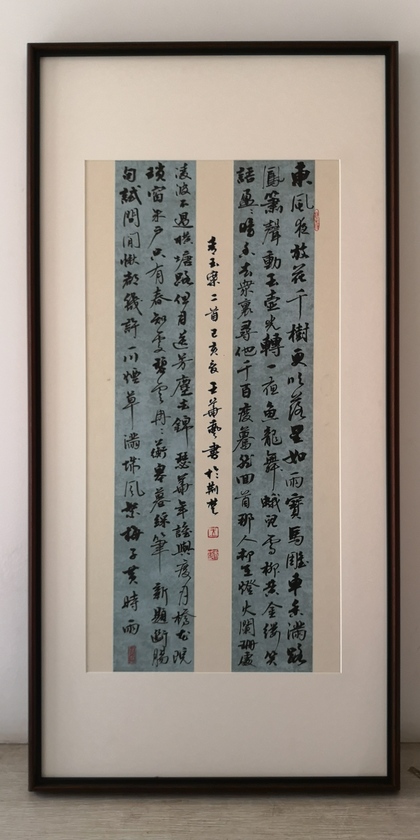 東風夜放花千樹更吹落星如雨寶馬雕車香滿路
鳳簫聲動玉壺光轉一夜魚龍舞蛾兒雪柳黃金縷笑
語盈盈暗香去衆裏尋他千百度驀然回首那人却在燈火闌珊處
青玉案二首己亥夏王華藝書於荊楚
凌波不過橫塘路但目送芳塵去錦瑟華年誰與度月橋花院
瑣窗朱戶只有春知處碧雲冉冉蘅皋暮綵筆新題斷腸
句試問閒愁都幾許一川煙草滿城風絮梅子黃時雨